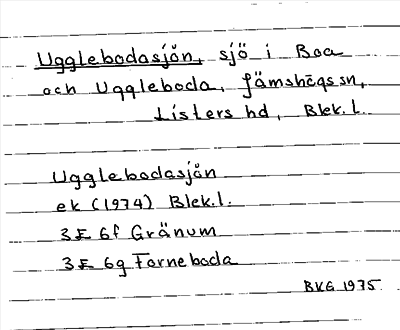 Ugglebodasjön, sjö i Boa
och Uggleboda, Jämshögs sn,
Listers hd, Blek. l.
Ugglebodasjön
ek (1974) Blek. l.
3E 6f Gränum
3E 6g Farneboda
BKG 1975